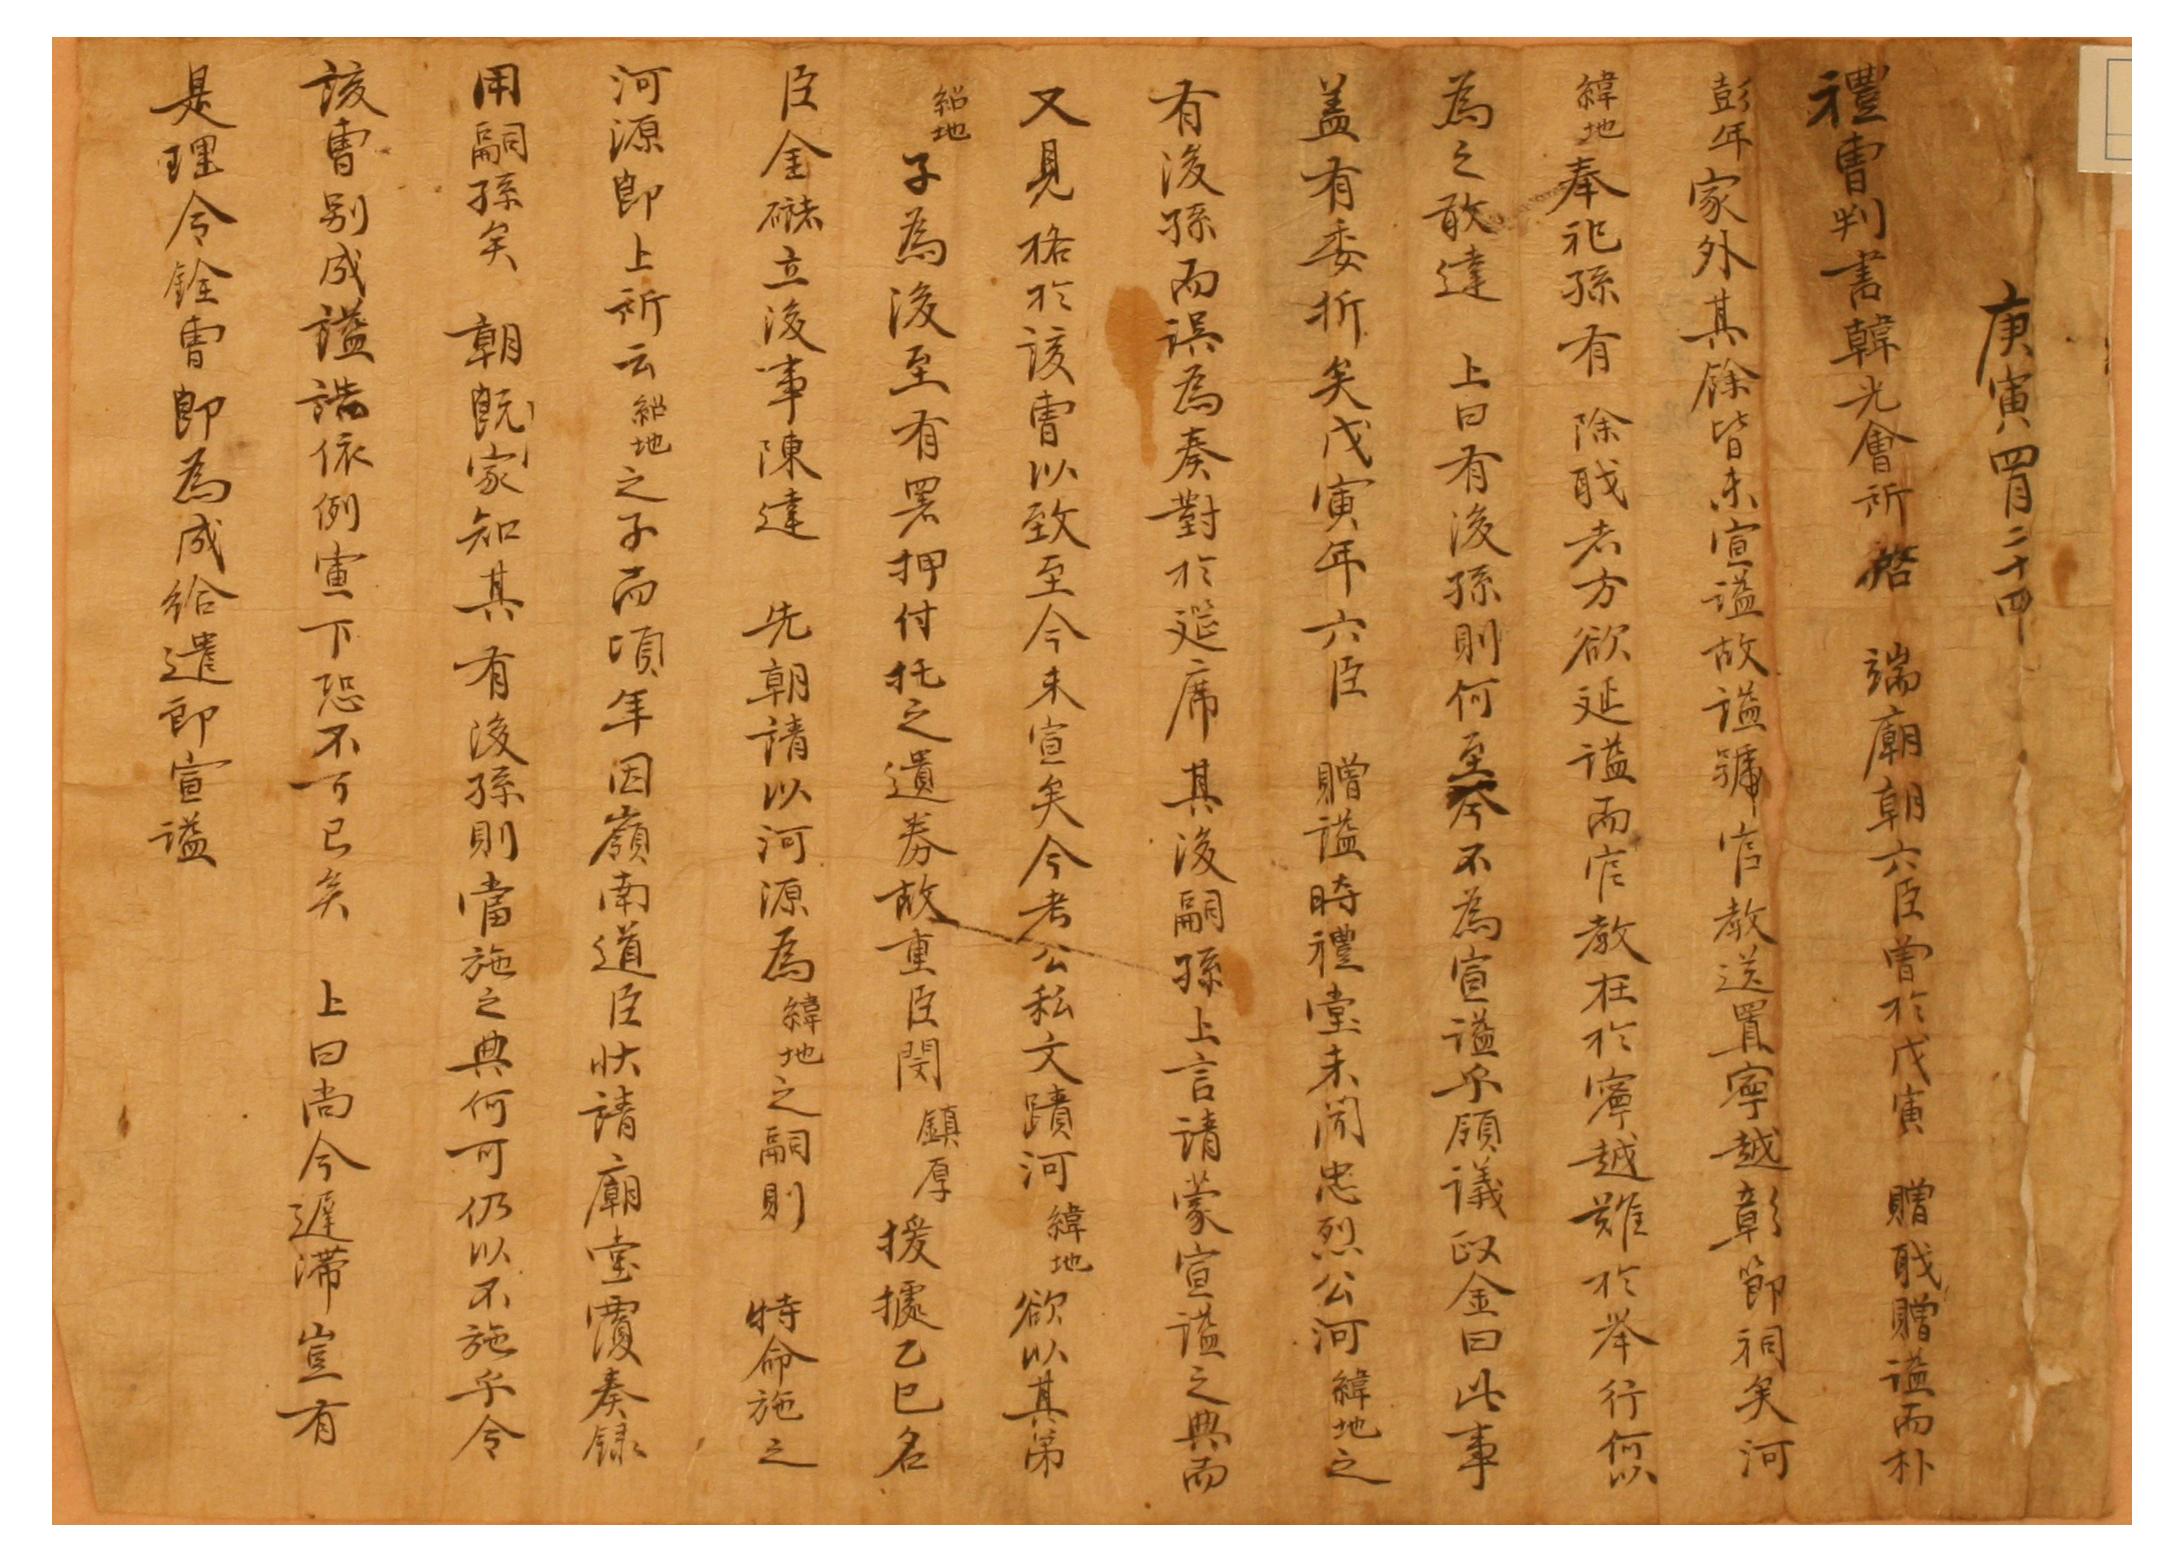 庚寅四月二十四
禮曹判書韓光會所啓 端廟朝六臣曾於戊寅 贈職贈諡而朴
彭年家外其餘皆未宣諡故諡號官教送置寧越彰節祠矣河
緯地奉祀孫有 除職者方欲延諡而官教在於寧越難於举行何以
為之敢達 上曰有後孫則何至今不為宣諡乎領議政金曰此事
盖有委折矣戊寅年六臣 贈諡時禮堂未聞忠烈公河緯地之
有後孫而誤為奏對於筵席其後嗣孫上言請蒙宣諡之典而
又見格於該曹以致至今未宣矣今考公私文蹟河緯地欲以其弟
紹地子為後至有署押付托之遺券故重臣閔鎮厚援據乙巳名
臣金礎立後事陳達 先朝請以河源為緯地之嗣則 特命施之
河源卽上所云紹地之子而頃年因嶺南道臣狀請廟堂覆奏録
用嗣孫矣 朝旣家知其有後孫則當施之典何可仍以不施乎令
該曹別成諡誥依例宣下恐不可已矣 上曰尚今遲滯豈有
是理令銓曹卽為成給遣卽宣諡